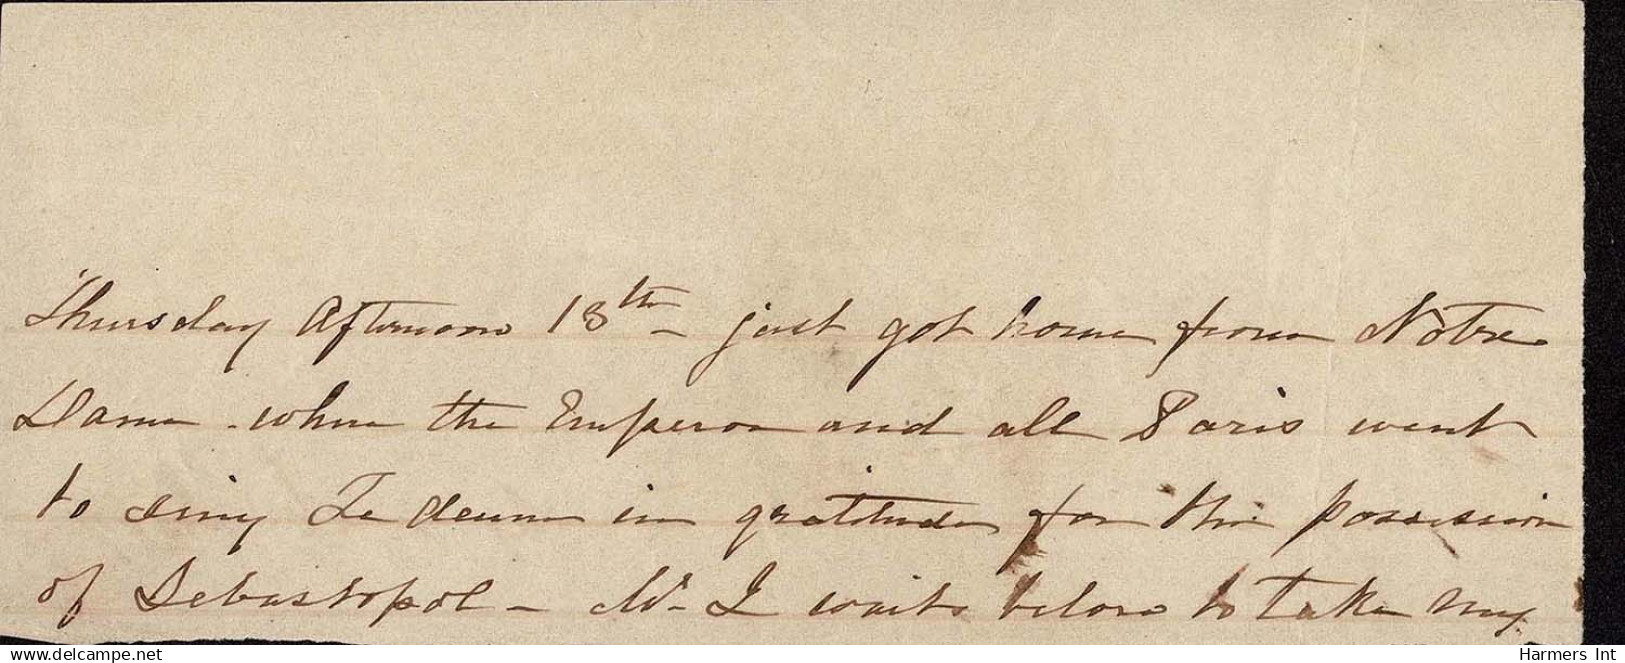 Thursday Afternoon 13th - just got home from Notre
Dame - where the Emperor and all Paris went
to sing Te deum in gratitude for the possession
of Sebastopol - Mr. I waits below to take my
delcampe.net
Harmers Int